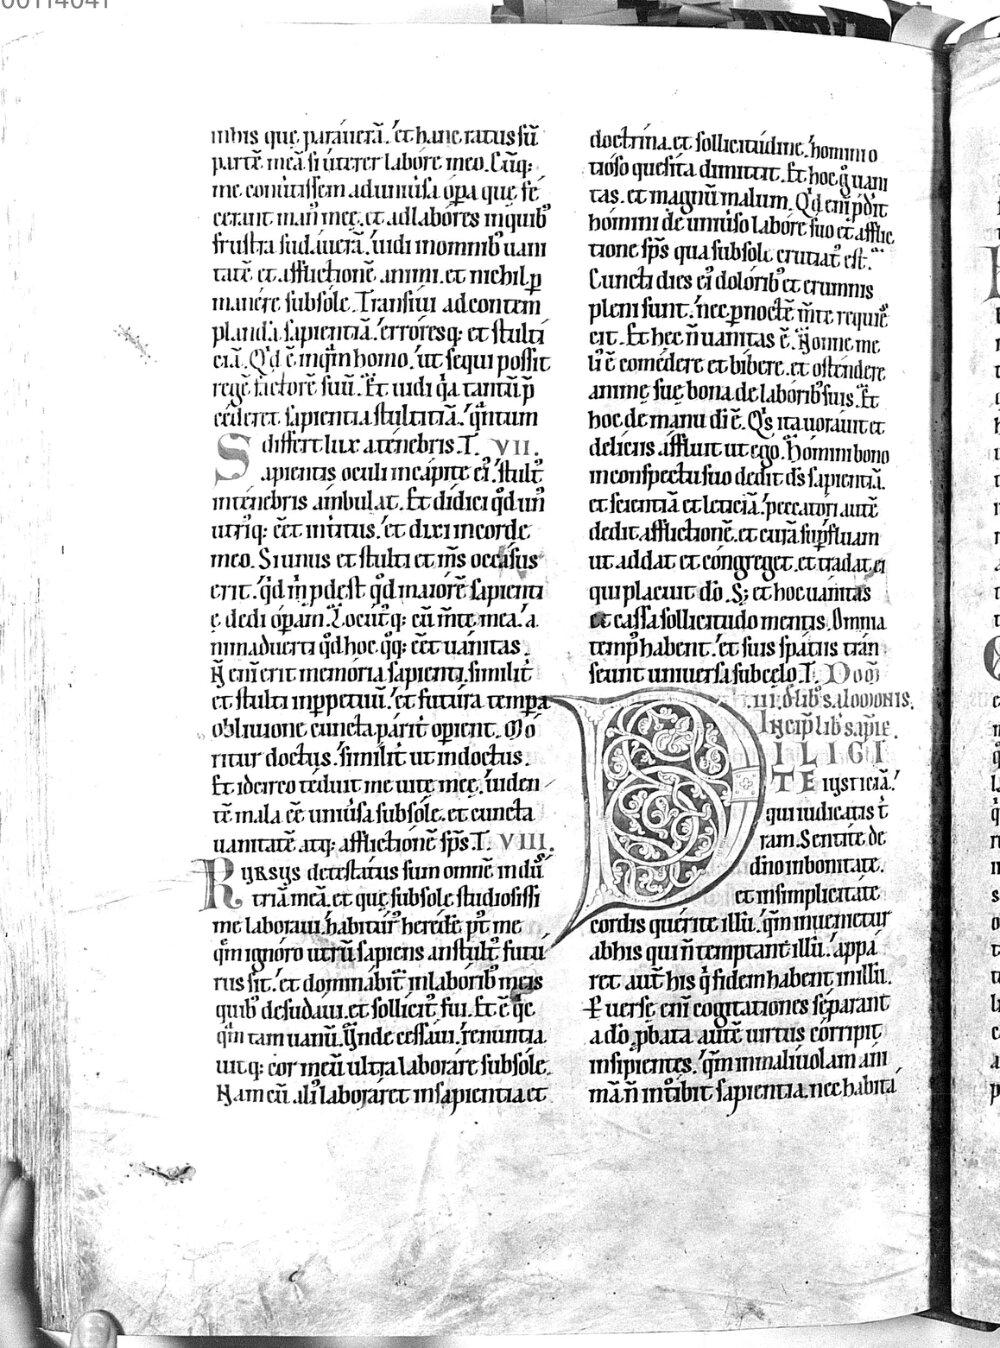 00114041
nibis que parauerā. et hanc ratus sū
partē meā si uterer labore meo. Cūq;
me conuertissem ad uniuersa opa que fe
cerant man᷒ meę. et ad labores in quib᷒
frustra sudauerā. uidi in omnib᷒ uani
tatē et afflictionē animi. et nichil p
manere sub sole. Transiui ad contem
plandā sapientiā. erroresq; et stulti
ciā. Qd ē inqͣm homo. ut sequi possit
regē factorē suū. Et uidi qa tantū p̄
cederet sapientia stultitiā. qͣntum
differt lux a tenebris. T. VII.
Sapientis oculi in capite ei᷒. stult᷒
in tenebris ambulat. Et didici qd un᷒
utriq; eēt interitus. et dixi in corde
meo. Si unus et stulti et m̄s occasus
erit. qd m̄ pdest qd maiorē sapienti
ę dedi opam. Locut᷒q; cū m̄te mea. a
nimaduerti qd hoc qq; eēt uanitas.
Ñ enī erit memoria sapientis similit̄
et stulti inppetuū. et futura tempa
obliuione cuncta parit̄ operient. Mo
ritur doctus. similit̄ ut indoctus.
Et idcirco tęduit me uite meę. uiden
tē mala eē uniuersa sub sole. et cuncta
uanitatē atq; afflictionē sp̄s. T. VIII.
Rursus detestatus sum omnē indus
triā meā. et quę sub sole studiosissi
me laboraui. habitur᷒ heredē p᷒t me
qm̄ ignoro utrū sapiens an stult᷒ futu
rus sit. et dominabit᷑ in laborib᷒ meis
quib᷒ desudaui. et sollicit᷒ fui. Et ē qͣe
qͣm tam uanū. Unde cessaui. renuntia
uitq; cor meū ultra laborare sub sole.
Nam cū ali᷒ laboraret in sapientia et
doctrina. et sollicitudine. homini o
tioso quesita dimittit. Et hoc g̊ uani
tas. et magnū malum. Qd enī pdīt
homini de uniuerso labore suo et afflic
tione sp̄s qua sub sole cruciat᷒ est.
Cuncti dies ei᷒ dolorib᷒ et erumnis
pleni sunt. nec p noctē m̄te requie
cit. Et hec ñ uanitas ē. Nonne me
li᷒ ē comedere et bibere. et ostendere
anime suę bona de laborib᷒ suis. Et
hoc de manu di ē. Qis ita uorauit et
deliciis affluit ut ego. Homini bono
in conspectu suo dedit ds sapientiā.
et scientiā et leticiā. peccatori autē
dedit afflictionē. et curā supfluam
ut addat et congreget. et tradat ei
qui placuit do. S; et hoc uanitas
et cassa sollicitudo mentis. Omnia
temp᷒ habent. et suis spatiis tran
seunt uniuersa sub celo. T.
Incip̄ lib sapīe.
DILIGI
TE iusticiā.
qui iudicatis t̄
ram. Sentite de
dn̄o in bonitate.
et in simplicitate
cordis querite illū. qm̄ inuenitur
ab his qui ñ temptant illū. appa
ret aut̄ his q̇ fidem habent in illū.
Puerse enī cogitationes separant
a do. pbata autē uirtus corripit
insipientes. qm̄ in maliuolam ani
mā ñ intͦibit sapientia. nec habita